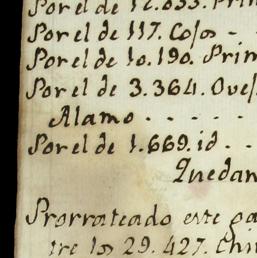 Por el de 12.833. Prim
Por el de 117. Cojos -
Por el de 10.190. Prim
Por el de 3.364. Ovej
Alamo . - - - -
Por el de 1.669. id - - -
Quedan
Prorrateado este ga
tre los 29.427. Chi